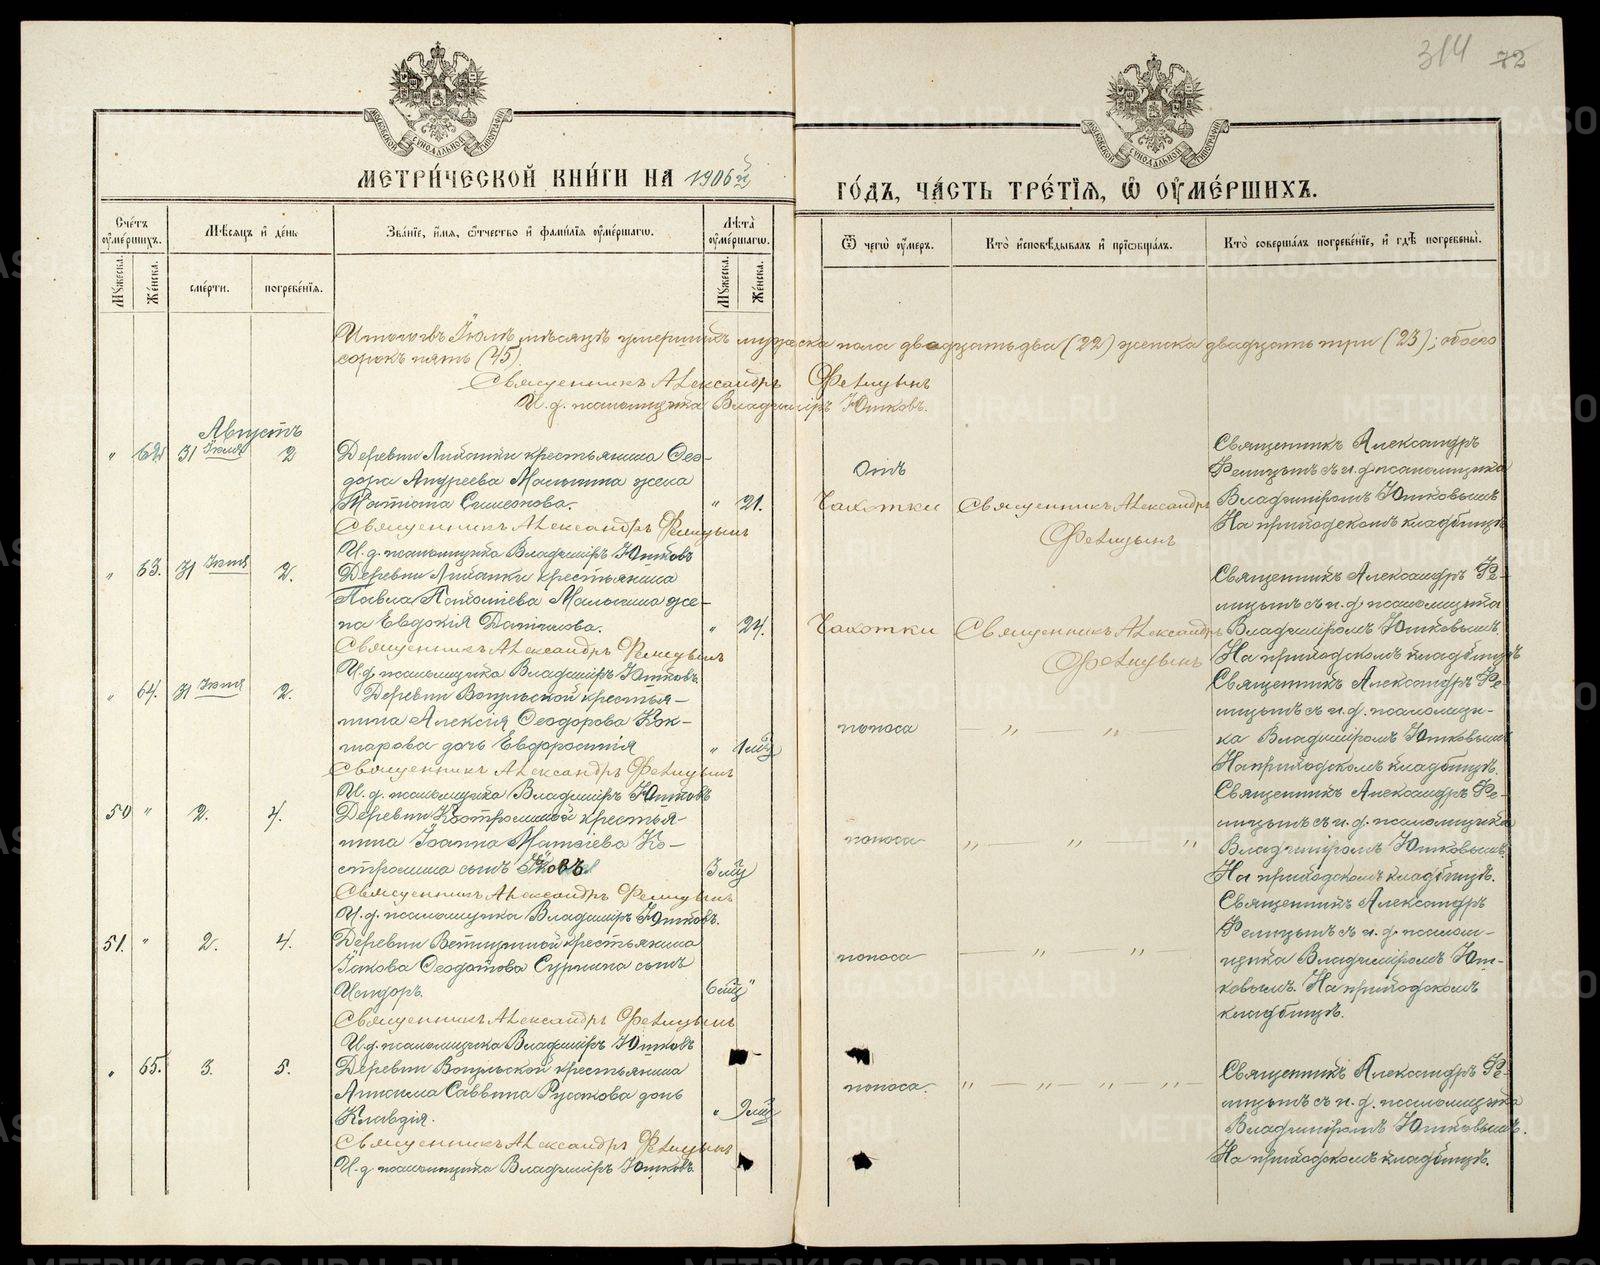 314 72
МЕТРИ́ЧЕСКОЙ КНИ́ГИ НА 1906й
ГО́ДЪ, ЧА́СТЬ ТРЕ́ТІѦ, Ѿ ОУ҆МЕ́РШИХЪ.
Сче́тъ оумершихъ.
Мѣсяцъ и день
Зва́ніе, имя, отчество и фамилія оумершагѡ.
Лѣта оумершагѡ.
Ѿ чегѡ оумеръ.
Кто исповѣдывалъ и пріобщалъ.
Кто совершалъ погребеніе, и гдѣ погребены.
Мужеска.
Женска.
смерти.
погребенія.
Мужеска.
Женска.
Итого въ Іюлѣ мѣсяцѣ умершихъ мужеска пола двадцать два (22) женска двадцать три (23); обоего
сорокъ пять (45)
Священникъ Александръ Фелицынъ
И. д. псаломщика Владиміръ Ютковъ.
Августъ
" 62 31 Іюля 2
Деревни крестьянина Ѳео-
дора Андреева Малыгина жена
Симеонова. " 21.
Священникъ Александръ Фелицынъ
И. д. псаломщика Владиміръ Ютковъ
Отъ
Чахотки
Священникъ Александръ
Фелицынъ
Священникъ Александръ
Фелицынъ съ и. д. псаломщика
Владиміромъ Ютковымъ
На приходскомъ кладбищѣ
" 63. 31 Іюля 2.
Деревни крестьянина
Павла Пахоміева Малыгина же-
на Евдокія Данилова. " 24.
Священникъ Александръ Фелицынъ
И. д. псаломщика Владиміръ Ютковъ.
Чахотки
Священникъ Александръ
Фелицынъ
Священникъ Александръ Фе-
лицынъ съ и. д. псаломщика
Владиміромъ Ютковымъ
На приходскомъ кладбищѣ
" 64. 31 Іюля 2.
Деревни Вогульской крестья-
нина Алексія Ѳеодорова Кок-
шарова дочь Евфросинія " 1 мѣц
Священникъ Александръ Фелицынъ
И. д. псаломщика Владиміръ Ютковъ
поноса
— " — " —
Священникъ Александръ Фе-
лицынъ съ и. д. псаломщи-
ка Владиміромъ Ютковымъ
На приходскомъ кладбищѣ.
50 " 2. 4.
Деревни Костроминой крестья-
нина Іоанна Матѳіева Ко-
стромина сынъ Яковъ 3 мц
Священникъ Александръ Фелицынъ
И. д. псаломщика Владиміръ Ютковъ.
поноса
" — " — "
Священникъ Александръ Фе-
лицынъ съ и. д. псаломщика
Владиміромъ Ютковымъ.
На приходскомъ кладбищѣ.
51. " 2. 4.
Деревни крестьянина
Іакова Ѳеодотова Сургина сынъ
Исидоръ. 6 мц "
Священникъ Александръ Фелицынъ
И. д. псаломщика Владиміръ Ютковъ
поноса
— " — " —
Священникъ Александръ
Фелицынъ съ и. д. псалом-
щика Владиміромъ Ют-
ковымъ. На приходскомъ
кладбищѣ.
" 65. 3. 5.
Деревни Вогульской крестьянина
Саввина Русакова дочь
Клавдія. " 9 мц
Священникъ Александръ Фелицынъ
И. д. псаломщика Владиміръ Ютковъ
поноса.
" — " — " — " —
Священникъ Александръ Фе-
лицынъ съ и. д. псаломщика
Владиміромъ Ютковымъ.
На приходскомъ кладбищѣ.